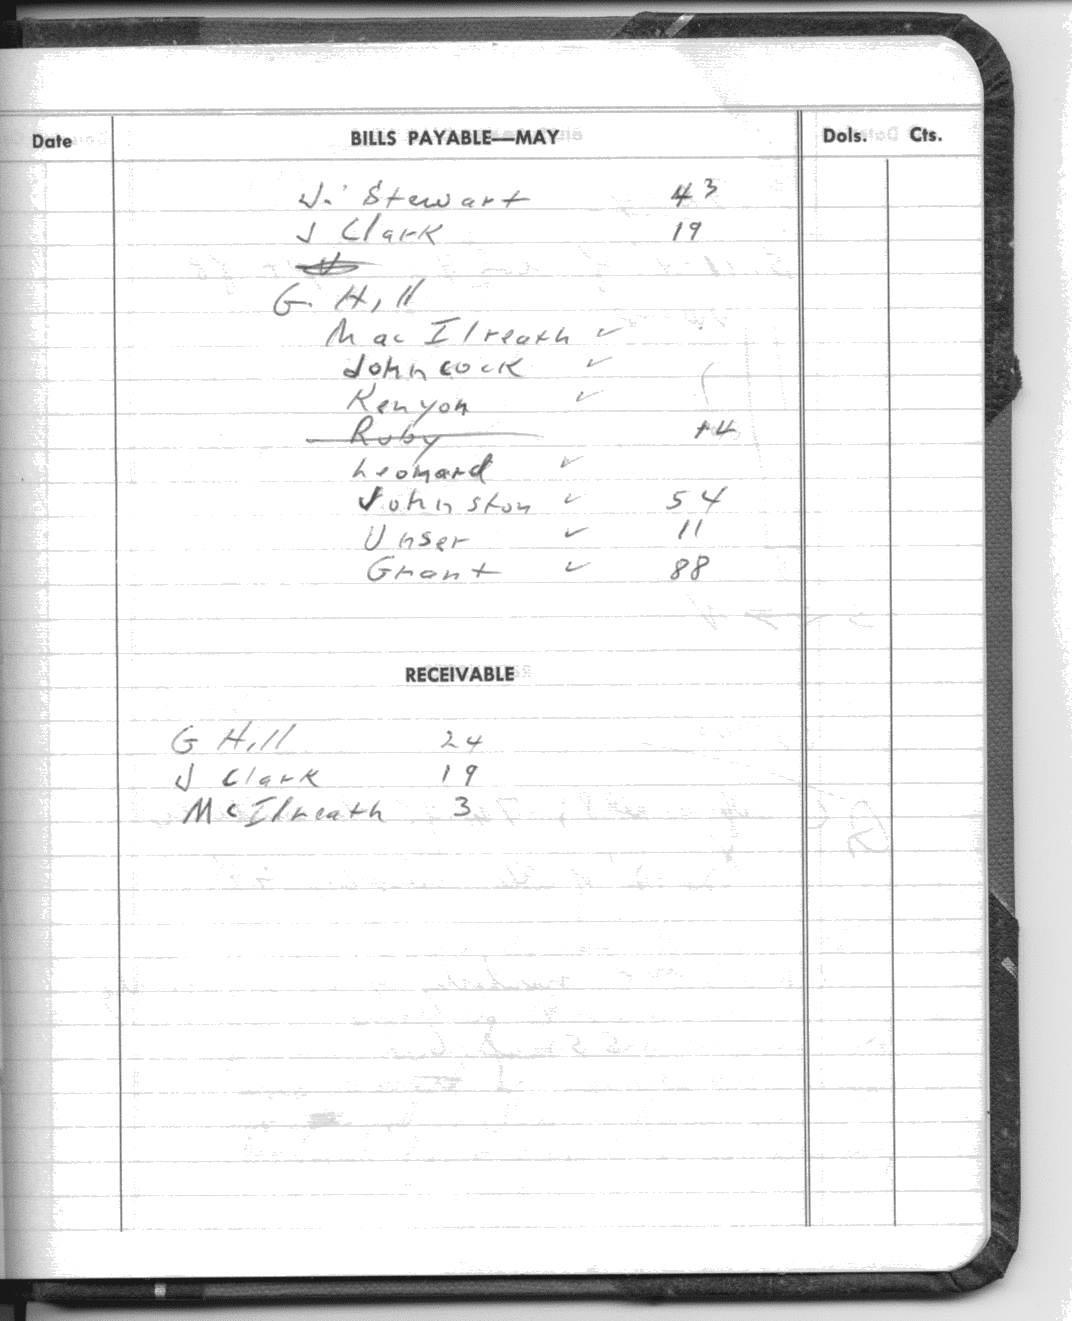 Date BILLS PAYABLE—MAY Dols. Cts.
J. Stewart 43
J Clark 19
G. Hill
Mac Ilreath ✓
Johncock ✓
Kenyon ✓
Ruby 14
Leonard ✓
Johnston ✓ 54
Unser ✓ 11
Grant ✓ 88
RECEIVABLE
G Hill 24
J Clark 19
McIlreath 3